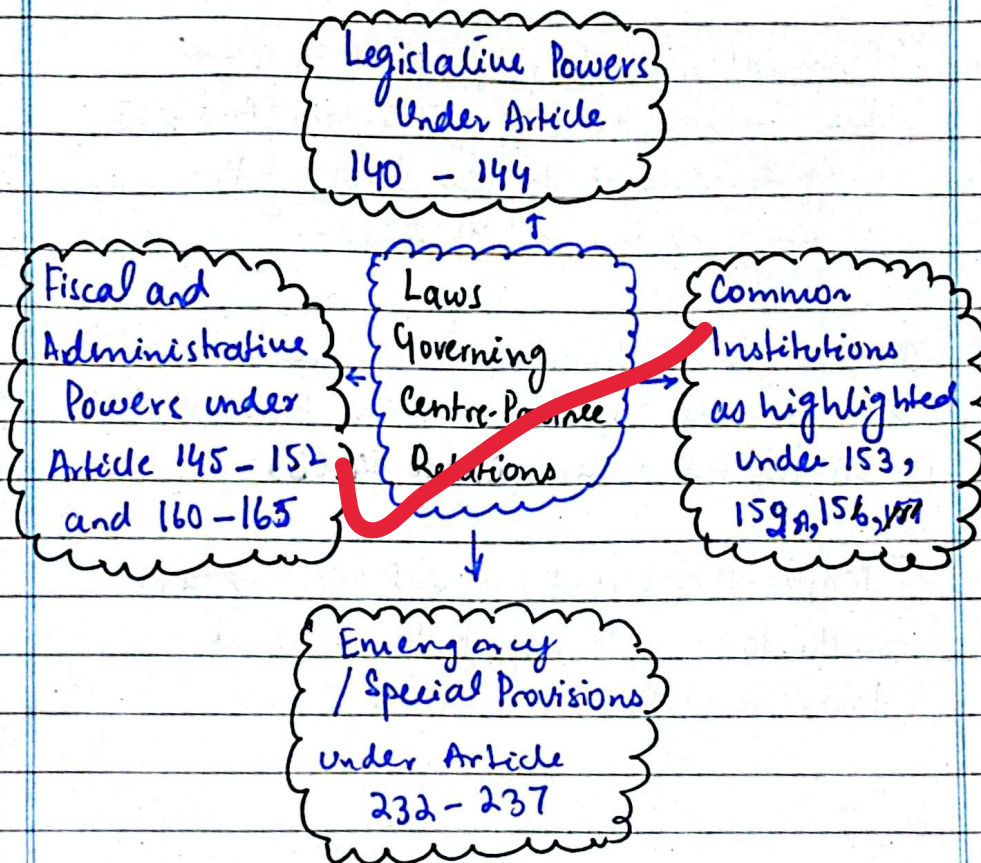 Legislative Powers
Under Article
140 - 144
Fiscal and
Administrative
Powers under
Article 145-152
and 160-165
Laws
Governing
Centre-Province
Relations
Common
Institutions
as highlighted
under 153,
159A, 156,
Emergency
/ Special Provisions
under Article
232-237